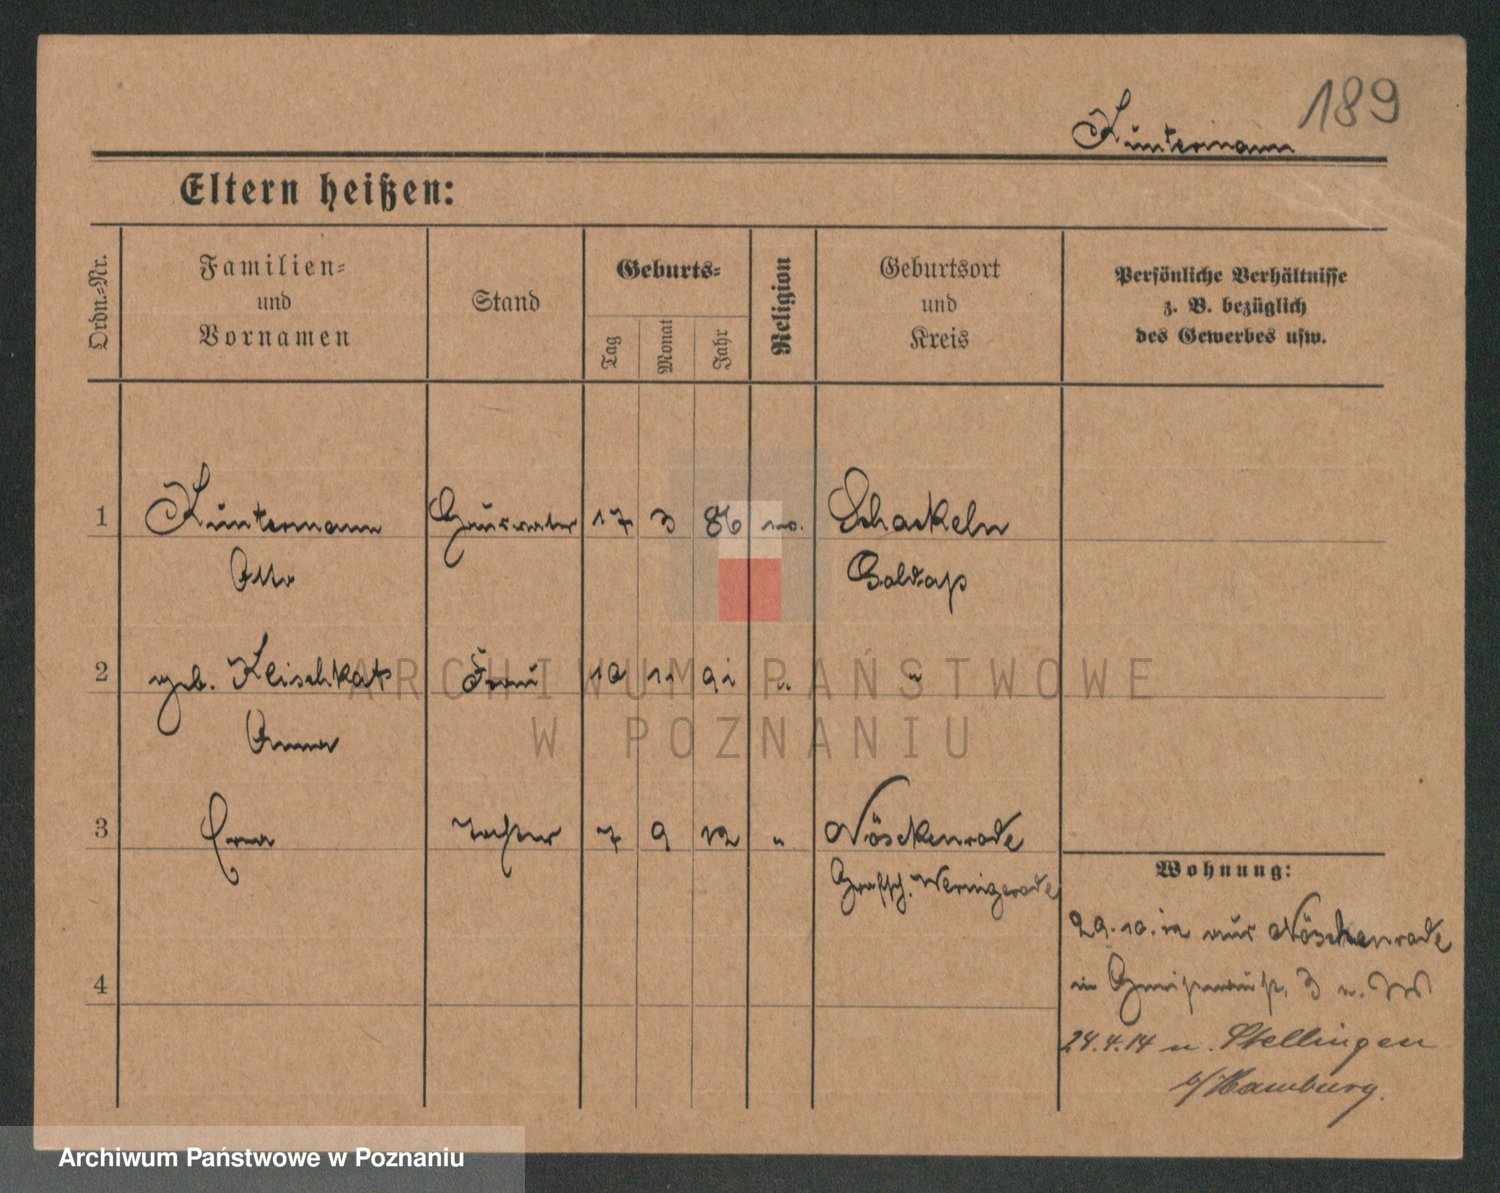 189
Kuntermann
Eltern heißen:
Ordn.=Nr.
Familien=
und
Vornamen
Stand
Geburts=
Tag
Monat
Jahr
Religion
Geburtsort
und
Kreis
Persönliche Verhältnisse
z. B. bezüglich
des Gewerbes usw.
1 Kuntermann 17 3 86 Schackeln
Otto Goldap
2 geb. Kleischkat Frau 10 11 91 " "
Anna
3 Erna Tochter 7 9 12 " Nöschenrode
Grafsch. Wernigerode
4
Wohnung:
29.10.12 aus Nöschenrode
in 3
28.4.14 n. Stellingen
b/Hamburg.
ARCHIWUM PAŃSTWOWE
W POZNANIU
Archiwum Państwowe w Poznaniu